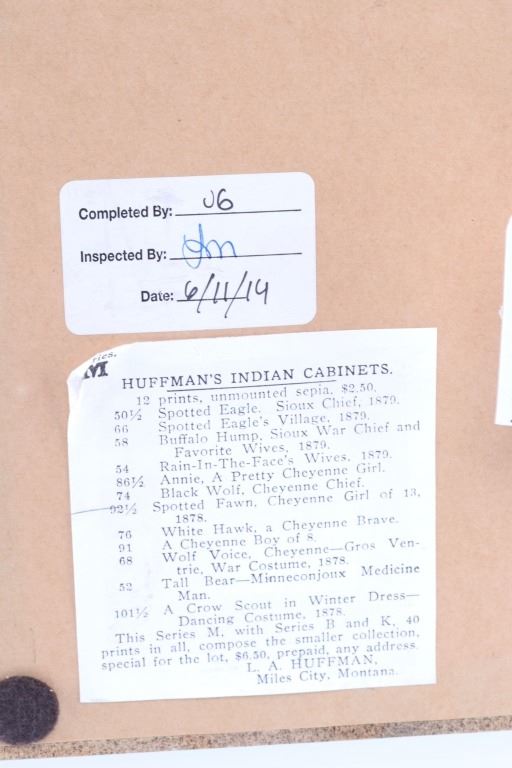 Completed By: JG
Inspected By:
Date: 6/11/14
ries.
M
HUFFMAN'S INDIAN CABINETS.
12 prints, unmounted sepia, $2.50.
50½ Spotted Eagle. Sioux Chief, 1879.
66 Spotted Eagle's Village, 1879.
58 Buffalo Hump, Sioux War Chief and
Favorite Wives, 1879.
54 Rain-In-The-Face's Wives, 1879.
86½ Annie, A Pretty Cheyenne Girl.
74 Black Wolf, Cheyenne Chief.
92½ Spotted Fawn, Cheyenne Girl of 13,
1878.
76 White Hawk, a Cheyenne Brave.
91 A Cheyenne Boy of 8.
68 Wolf Voice, Cheyenne—Gros Ven-
trie, War Costume, 1878.
52 Tall Bear—Minneconjoux Medicine
Man.
101½ A Crow Scout in Winter Dress—
Dancing Costume, 1878.
This Series M, with Series B and K, 40
prints in all, compose the smaller collection,
special for the lot, $6.50, prepaid, any address.
L. A. HUFFMAN,
Miles City, Montana.